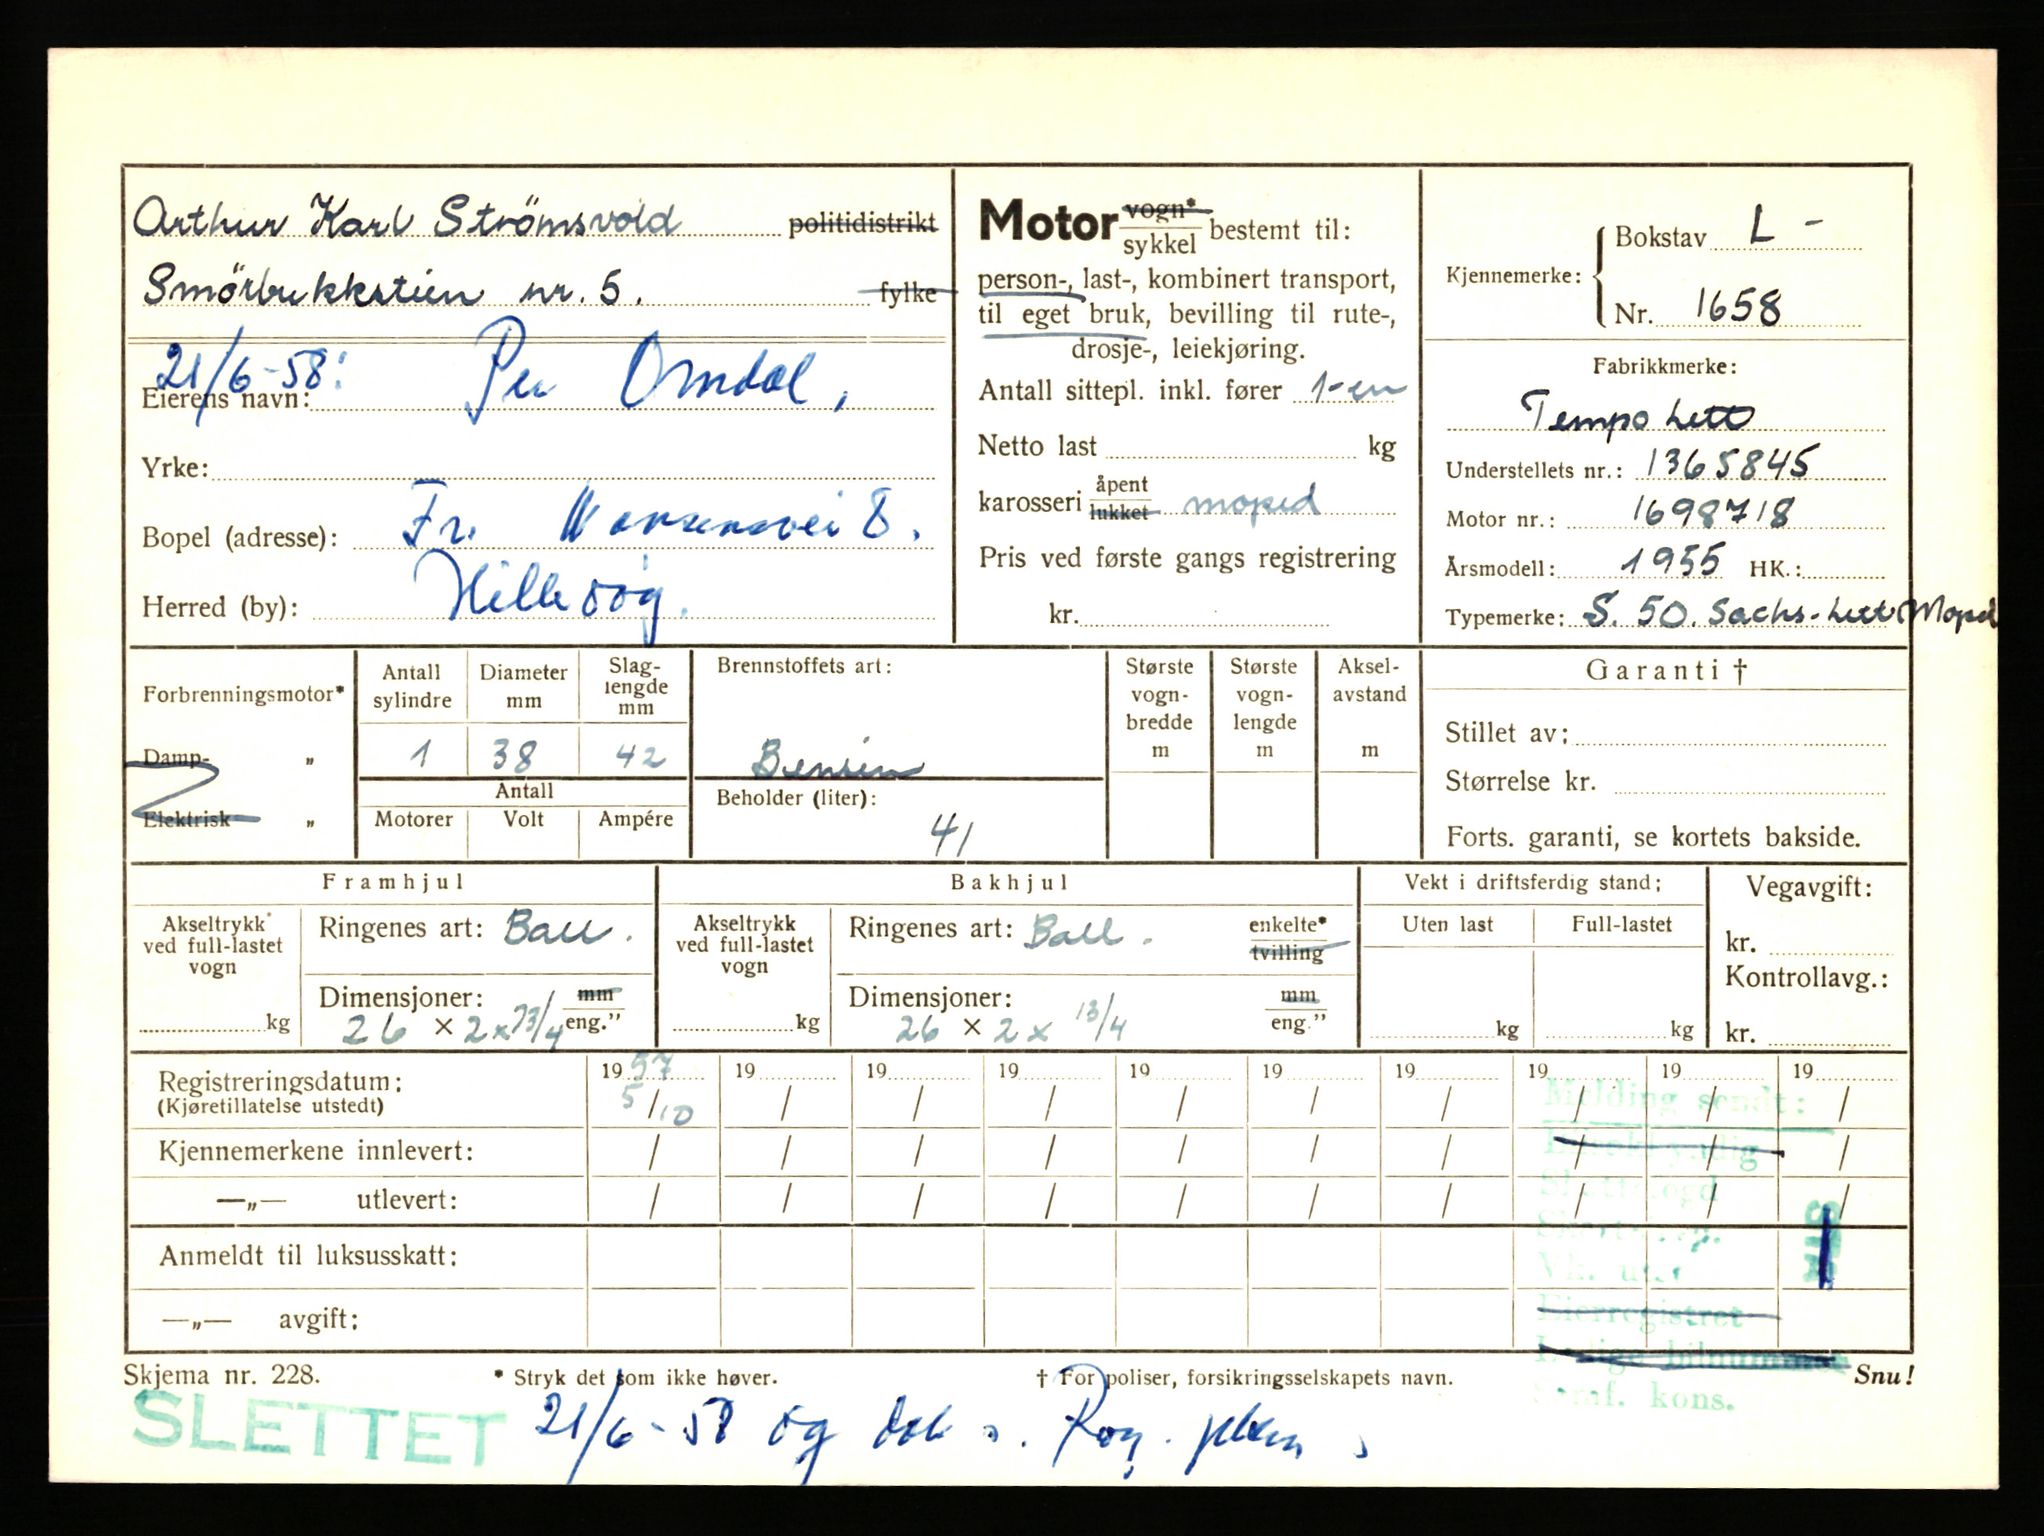 Arthur Karl Strömsvold politidistrikt
Smörbukkstien nr. 5. fylke
21/6-58: Per Omdal,
Eierens navn:
Yrke:
Bopel (adresse): Fr. Hansensvei 8.
Herred (by): Hillevåg.
Motor vogn*
sykkel bestemt til:
person-, last-, kombinert transport,
til eget bruk, bevilling til rute-,
drosje-, leiekjøring.
Antall sittepl. inkl. fører 1-en
Netto last kg
karosseri åpent
lukket moped
Pris ved første gangs registrering
kr.
Kjennemerke: Bokstav L -
Nr. 1658
Fabrikkmerke:
Tempo Lett
Understellets nr.: 1365845
Motor nr.: 1698718
Årsmodell: 1955 HK.:
Typemerke: S. 50. Sachs-Lett Moped
Forbrenningsmotor*
Damp- „
Elektrisk „
Antall sylindre
Diameter mm
Slag-lengde mm
1 38 42
Antall
Motorer Volt Ampére
Brennstoffets art:
Bensin
Beholder (liter):
4l
Største vogn-bredde m
Største vogn-lengde m
Aksel-avstand m
Garanti †
Stillet av:
Størrelse kr.
Forts. garanti, se kortets bakside.
Framhjul
Akseltrykk ved full-lastet vogn
kg
Ringenes art: Ball.
Dimensjoner: mm
26 × 2 x 13/4 eng."
Bakhjul
Akseltrykk ved full-lastet vogn
kg
Ringenes art: Ball. enkelte*
tvilling
Dimensjoner: mm
26 × 2 x 13/4 eng."
Vekt i driftsferdig stand:
Uten last Full-lastet
kg kg
Vegavgift:
kr.
Kontrollavg.:
kr.
Registreringsdatum: 1957 19 19 19 19 19 19 19 19 19
(Kjøretillatelse utstedt) 5/10 / / / / / / / / /
Kjennemerkene innlevert: / / / / / / / / / /
—„— utlevert: / / / / / / / / / /
Anmeldt til luksusskatt:
—„— avgift:
Melding sendt:
Eierregistret
kons.
Skjema nr. 228. * Stryk det som ikke høver. † For poliser, forsikringsselskapets navn. Snu!
SLETTET 21/6-58 og